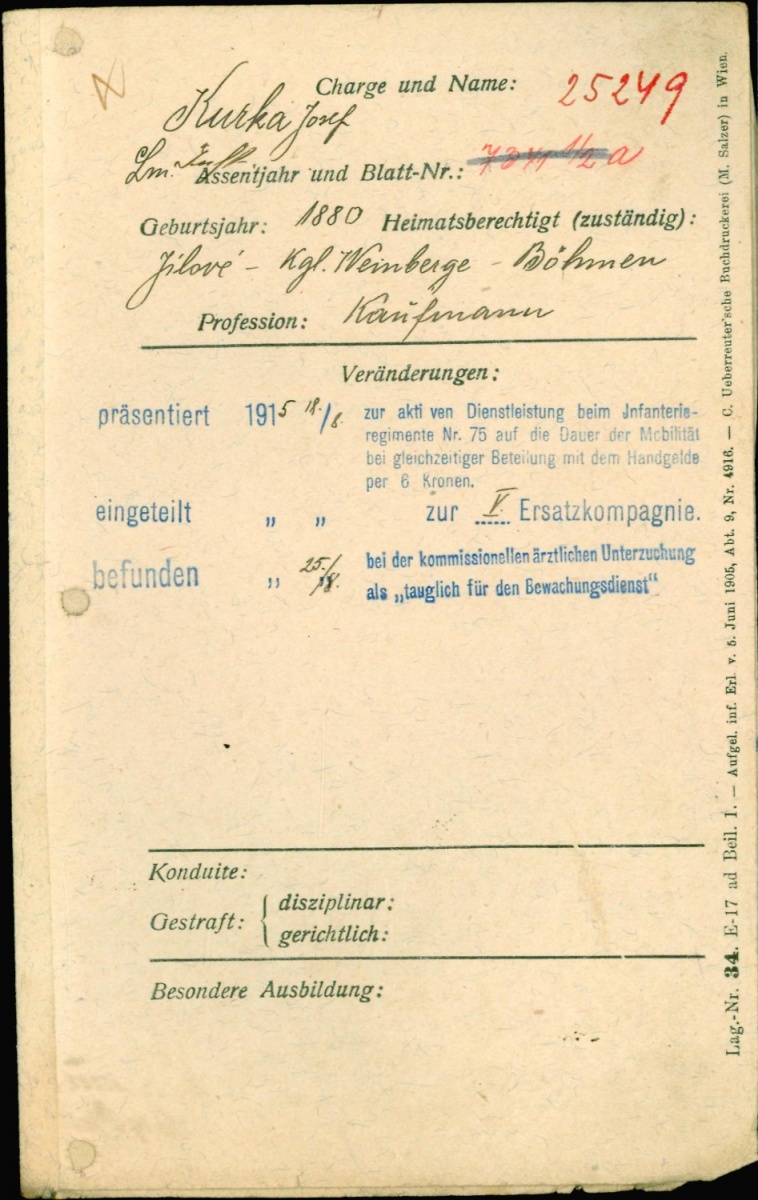 Charge und Name: 25249
Kurka Josef
Lm. Inft.
Assentjahr und Blatt-Nr.: 1/2 a
Geburtsjahr: 1880 Heimatsberechtigt (zuständig):
Jílové - Kgl. Weinberge - Böhmen
Profession: Kaufmann
Veränderungen:
präsentiert 1915 18./8. zur akti ven Dienstleistung beim Jnfanterie-
regimente Nr. 75 auf die Dauer der Mobilität
bei gleichzeitiger Beteilung mit dem Handgelde
per 6 Kronen.
eingeteilt „ „ zur V. Ersatzkompagnie.
befunden „ 25./8. bei der kommissionellen ärztlichen Unterzuchung
als „tauglich für den Bewachungsdienst“
Konduite:
Gestraft: { disziplinar:
gerichtlich:
Besondere Ausbildung:
Lag.-Nr. 34. E-17 ad Beil. 1. — Aufgel. inf. Erl. v. 5. Juni 1905, Abt. 9, Nr. 4916. — C. Ueberreuter'sche Buchdruckerei (M. Salzer) in Wien.